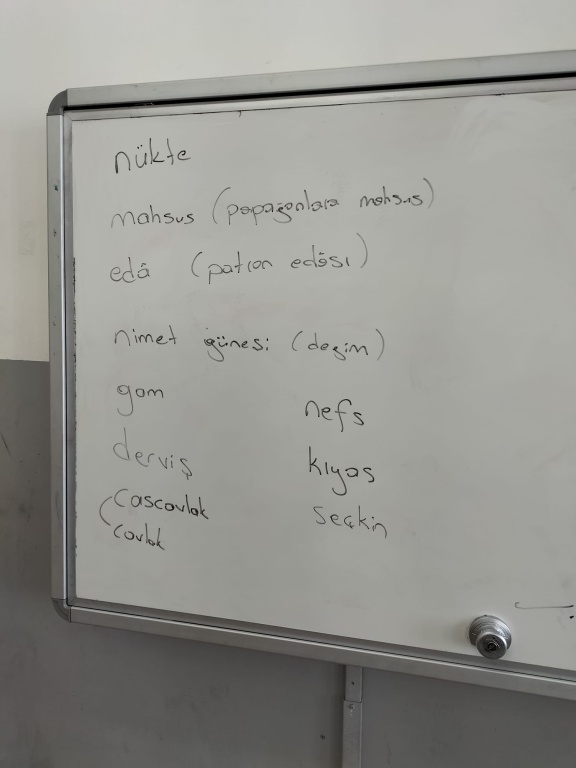 nükte
mahsus (papağanlara mahsus)
edâ (patron edâsı)
nimet güneşi (deyim)
gam
derviş
cascavlak
cavlak
nefs
kıyas
seçkin